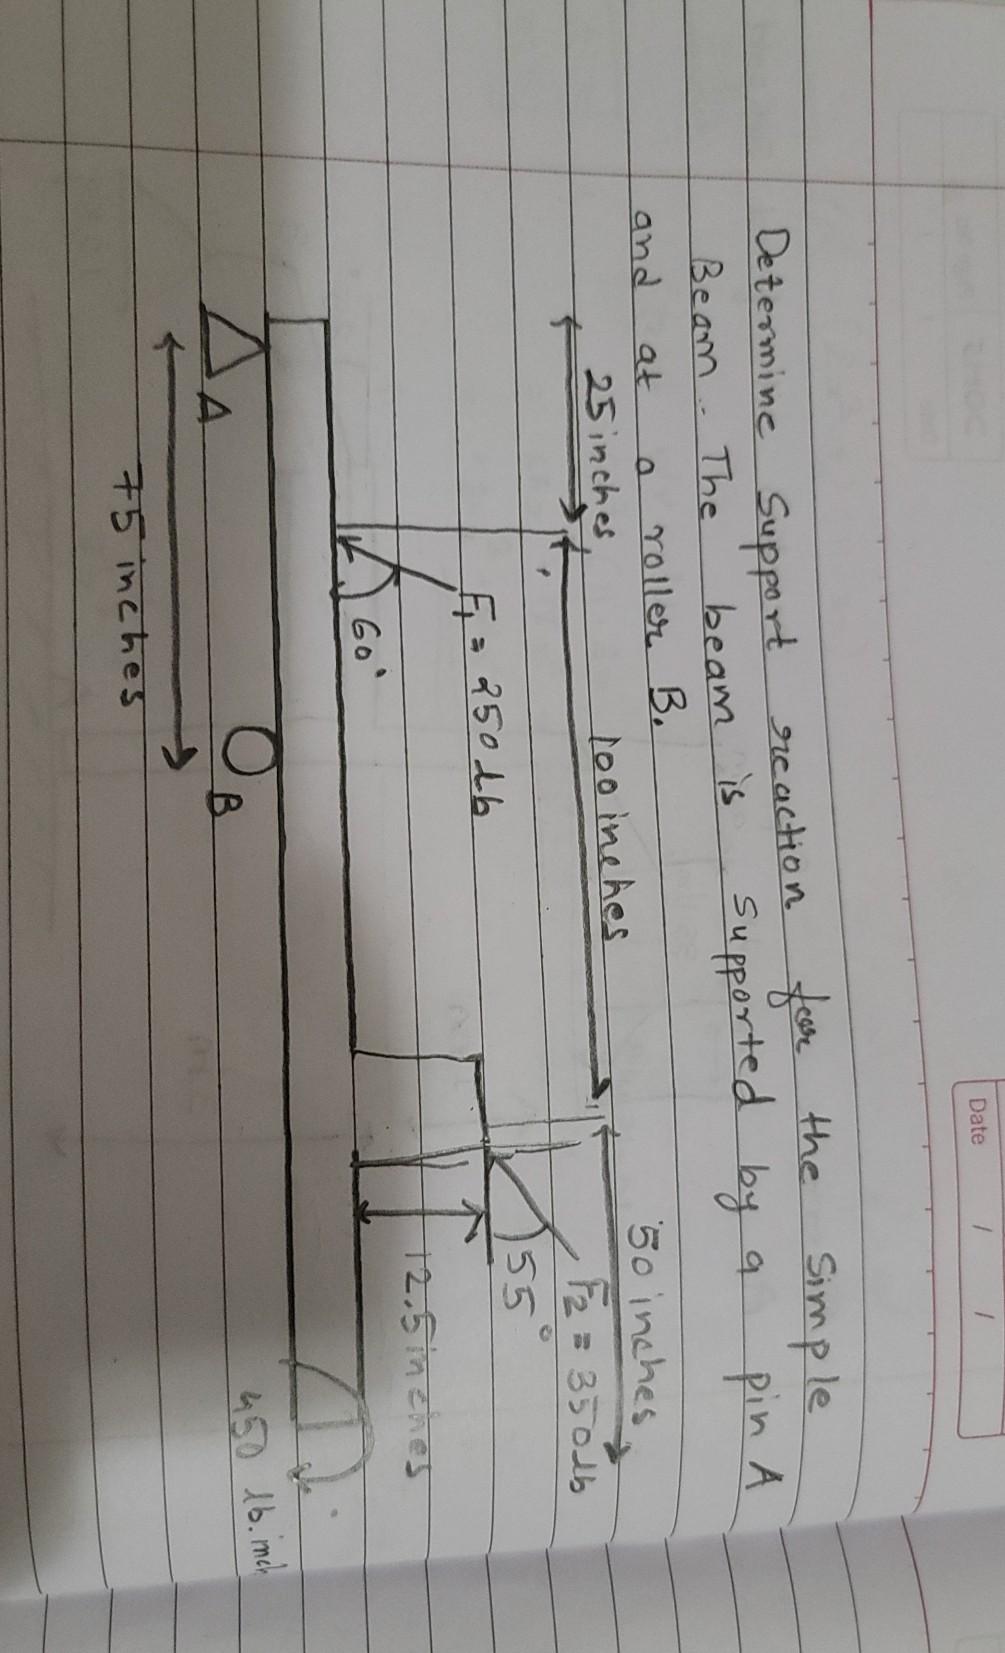 Date / /
Determine Support reaction for the Simple
Beam. The beam is supported by a pin A
and at a roller B.
25 inches 100 inches 50 inches
F1 = 250 lb F2 = 350 lb
60° 55°
12.5 inches
A B 450 lb.inch
75 inches